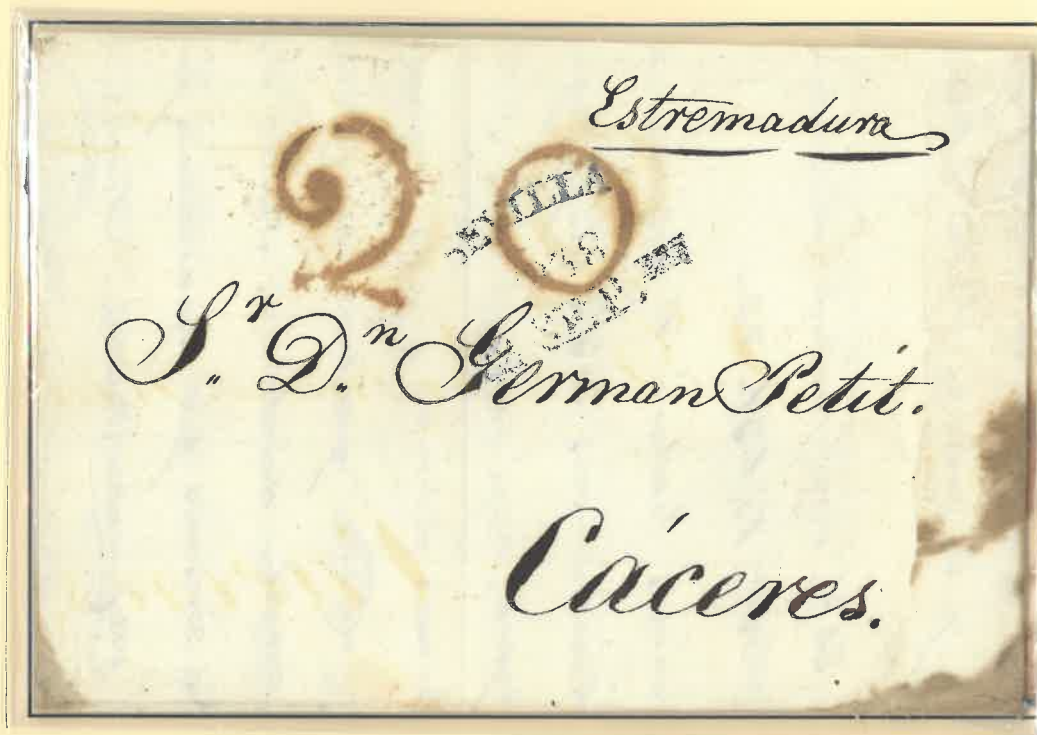 Estremadura
20
SEVILLA
SEP.
S.r D.n German Petit.
Cáceres.